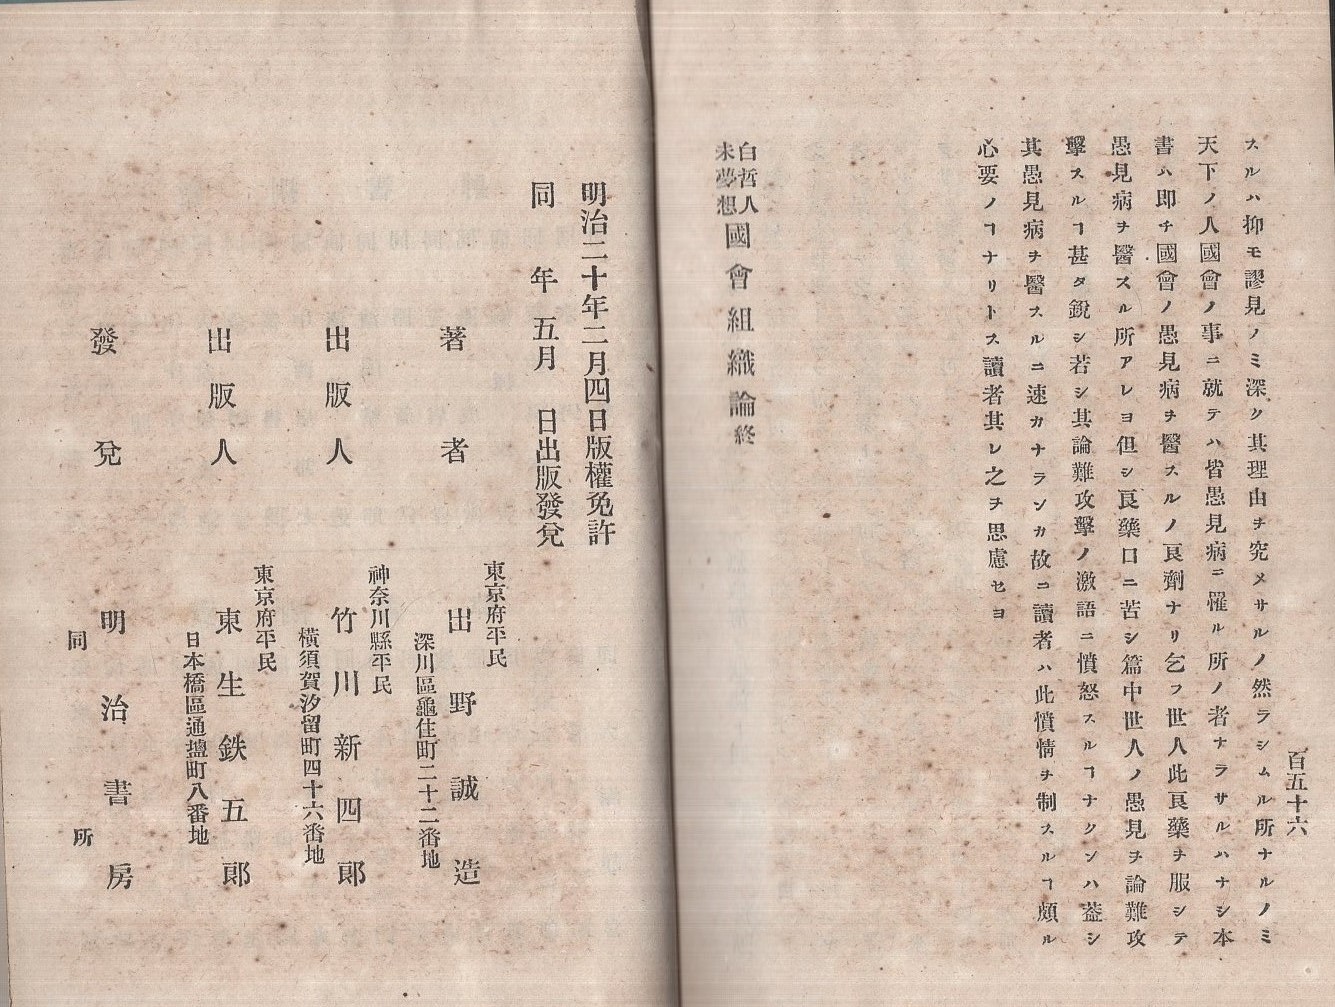 百五十六
スルハ抑モ謬見ノミ深ク其理由ヲ究メサルノ然ラシムル所ナルノミ
天下ノ人國會ノ事ニ就テハ皆愚見病ニ罹ル所ノ者ナラサルハナシ本
書ハ即チ國會ノ愚見病ヲ醫スルノ良劑ナリ乞フ世人此良藥ヲ服シテ
愚見病ヲ醫スル所アレヨ但シ良藥口ニ苦シ篇中世人ノ愚見ヲ論難攻
擊スルヿ甚タ鋭シ若シ其論難攻擊ノ激語ニ憤怒スルヿナクンハ葢シ
其愚見病ヲ醫スルニ速カナランカ故ニ讀者ハ此憤情ヲ制スルヿ頗ル
心要ノヿナリトス讀者其レ之ヲ思慮セヨ
白哲人
未夢想
國會組織論終
明治二十年二月四日版權免許
同年五月 日出版發兌
著者
東京府平民
出野誠造
深川區龜住町二十二番地
出版人
神奈川縣平民
竹川新四郎
横須賀汐留町四十六番地
出版人
東京府平民
東生鉄五郎
日本橋區通塩町八番地
發兌
明治書房
同所